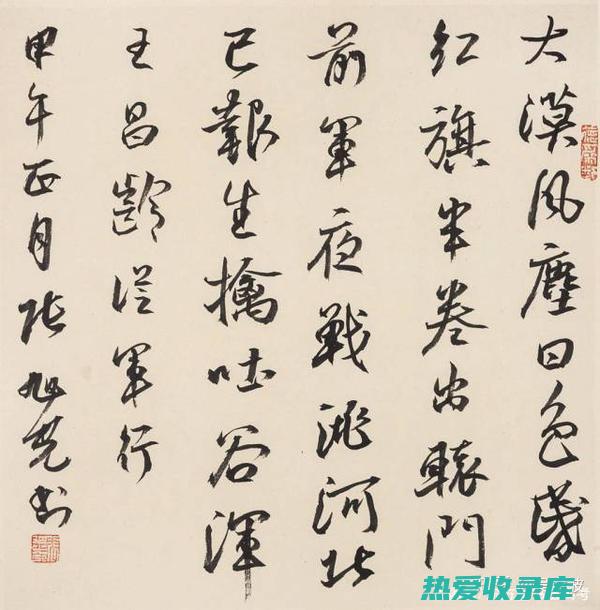 大漠風塵日色昏
紅旗半卷出轅門
前軍夜戰洮河北
已報生擒吐谷渾
王昌齡從軍行
甲午正月張旭光書
热爱收录库